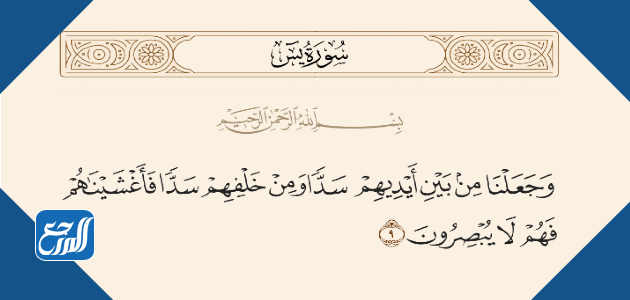 سُورَةُ يسٓ
بِسْمِ اللَّهِ الرَّحْمَٰنِ الرَّحِيمِ
وَجَعَلْنَا مِنۢ بَيْنِ أَيْدِيهِمْ سَدًّا وَمِنْ خَلْفِهِمْ سَدًّا فَأَغْشَيْنَاهُمْ
فَهُمْ لَا يُبْصِرُونَ ٩
المرجع